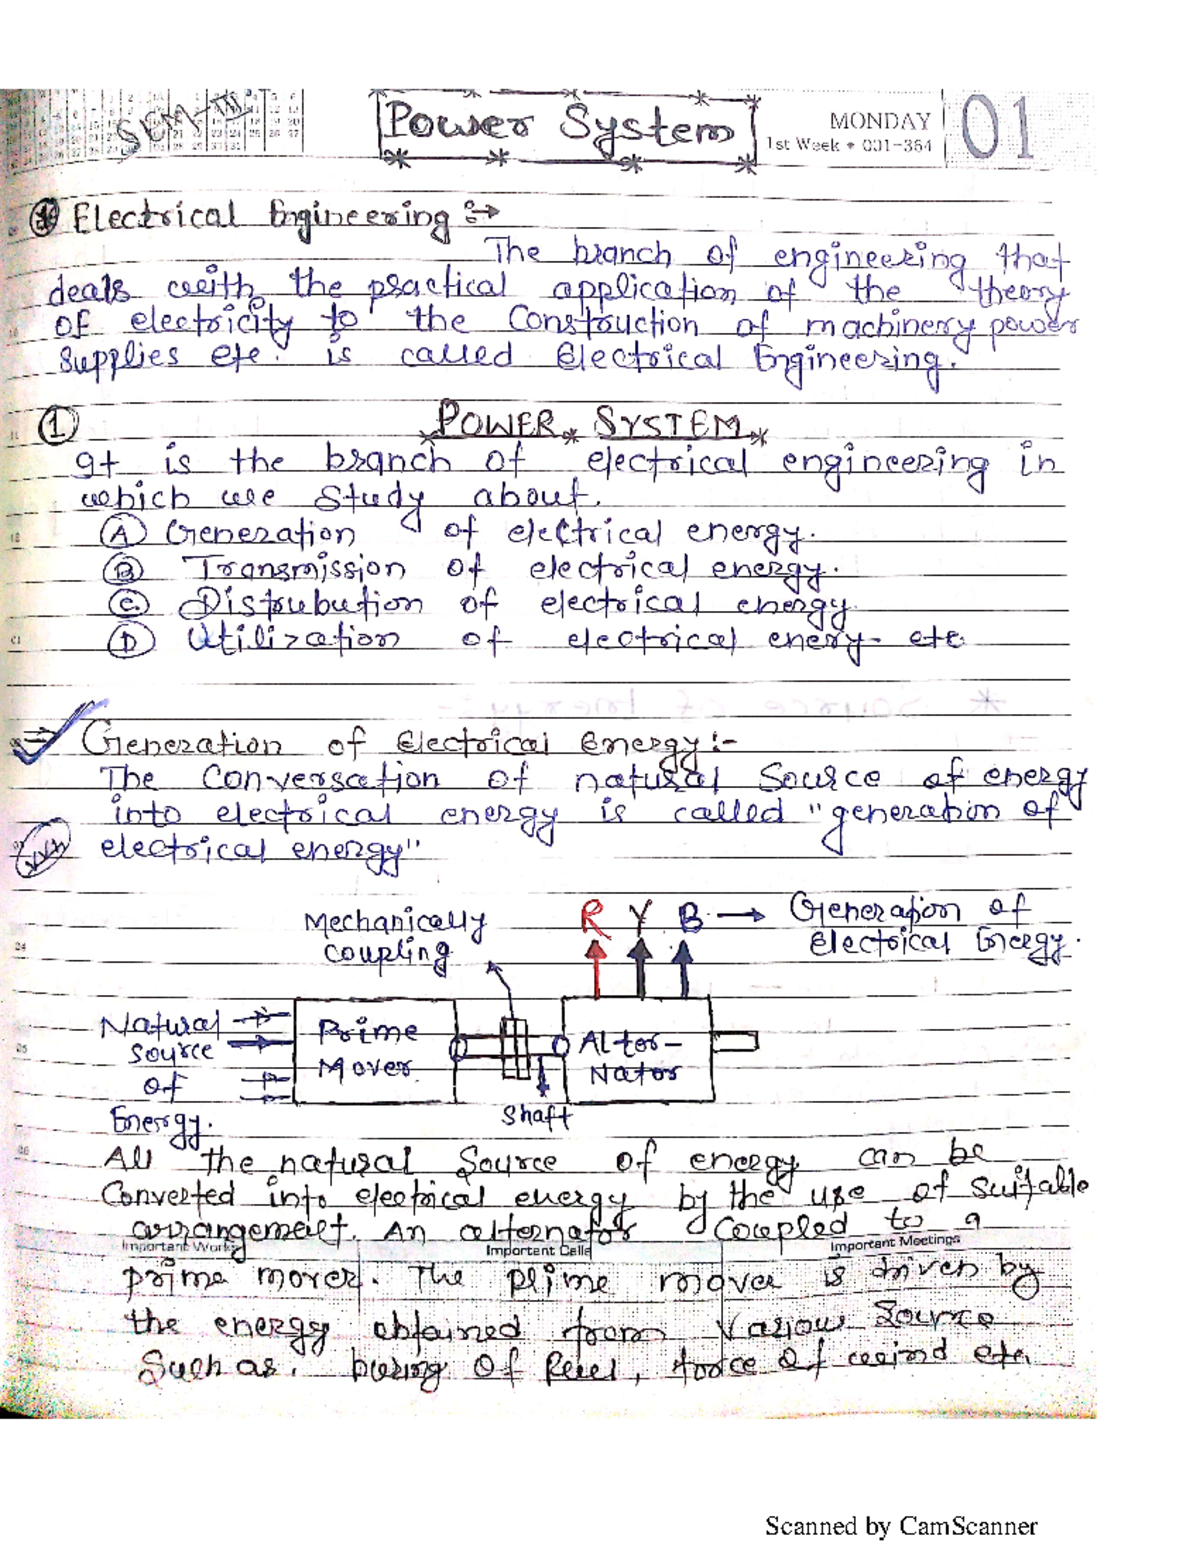 SEM-III
Power System
MONDAY
1st Week • 001-364
01
Electrical Engineering :→
The branch of engineering that
deals with the practical application of the theory
of electricity to the Construction of machinery power
supplies etc. is called Electrical Engineering.
1 POWER SYSTEM
It is the branch of electrical engineering in
which we study about.
A Generation of electrical energy.
B Transmission of electrical energy.
C. Distrubution of electrical energy
D Utilization of electrical enery etc
⇒ Generation of Electrical Energy:-
The Conversation of natural Source of energy
into electrical energy is called "generation of
electrical energy"
Mechanically
Coupling
R Y B → Generation of
Electrical Energy.
Natural
Source
of
Energy.
Prime
Mover
Shaft
Alter-
Nator
All the natural Source of energy can be
Converted into electrical energy by the use of suitable
arrangement. An alternator Coupled to a
Important Works
Important Calls
Important Meetings
prime mover. The prime mover is driven by
the energy obtained from Various Source
Such as. buring of fuel, force of wind etc.
Scanned by CamScanner